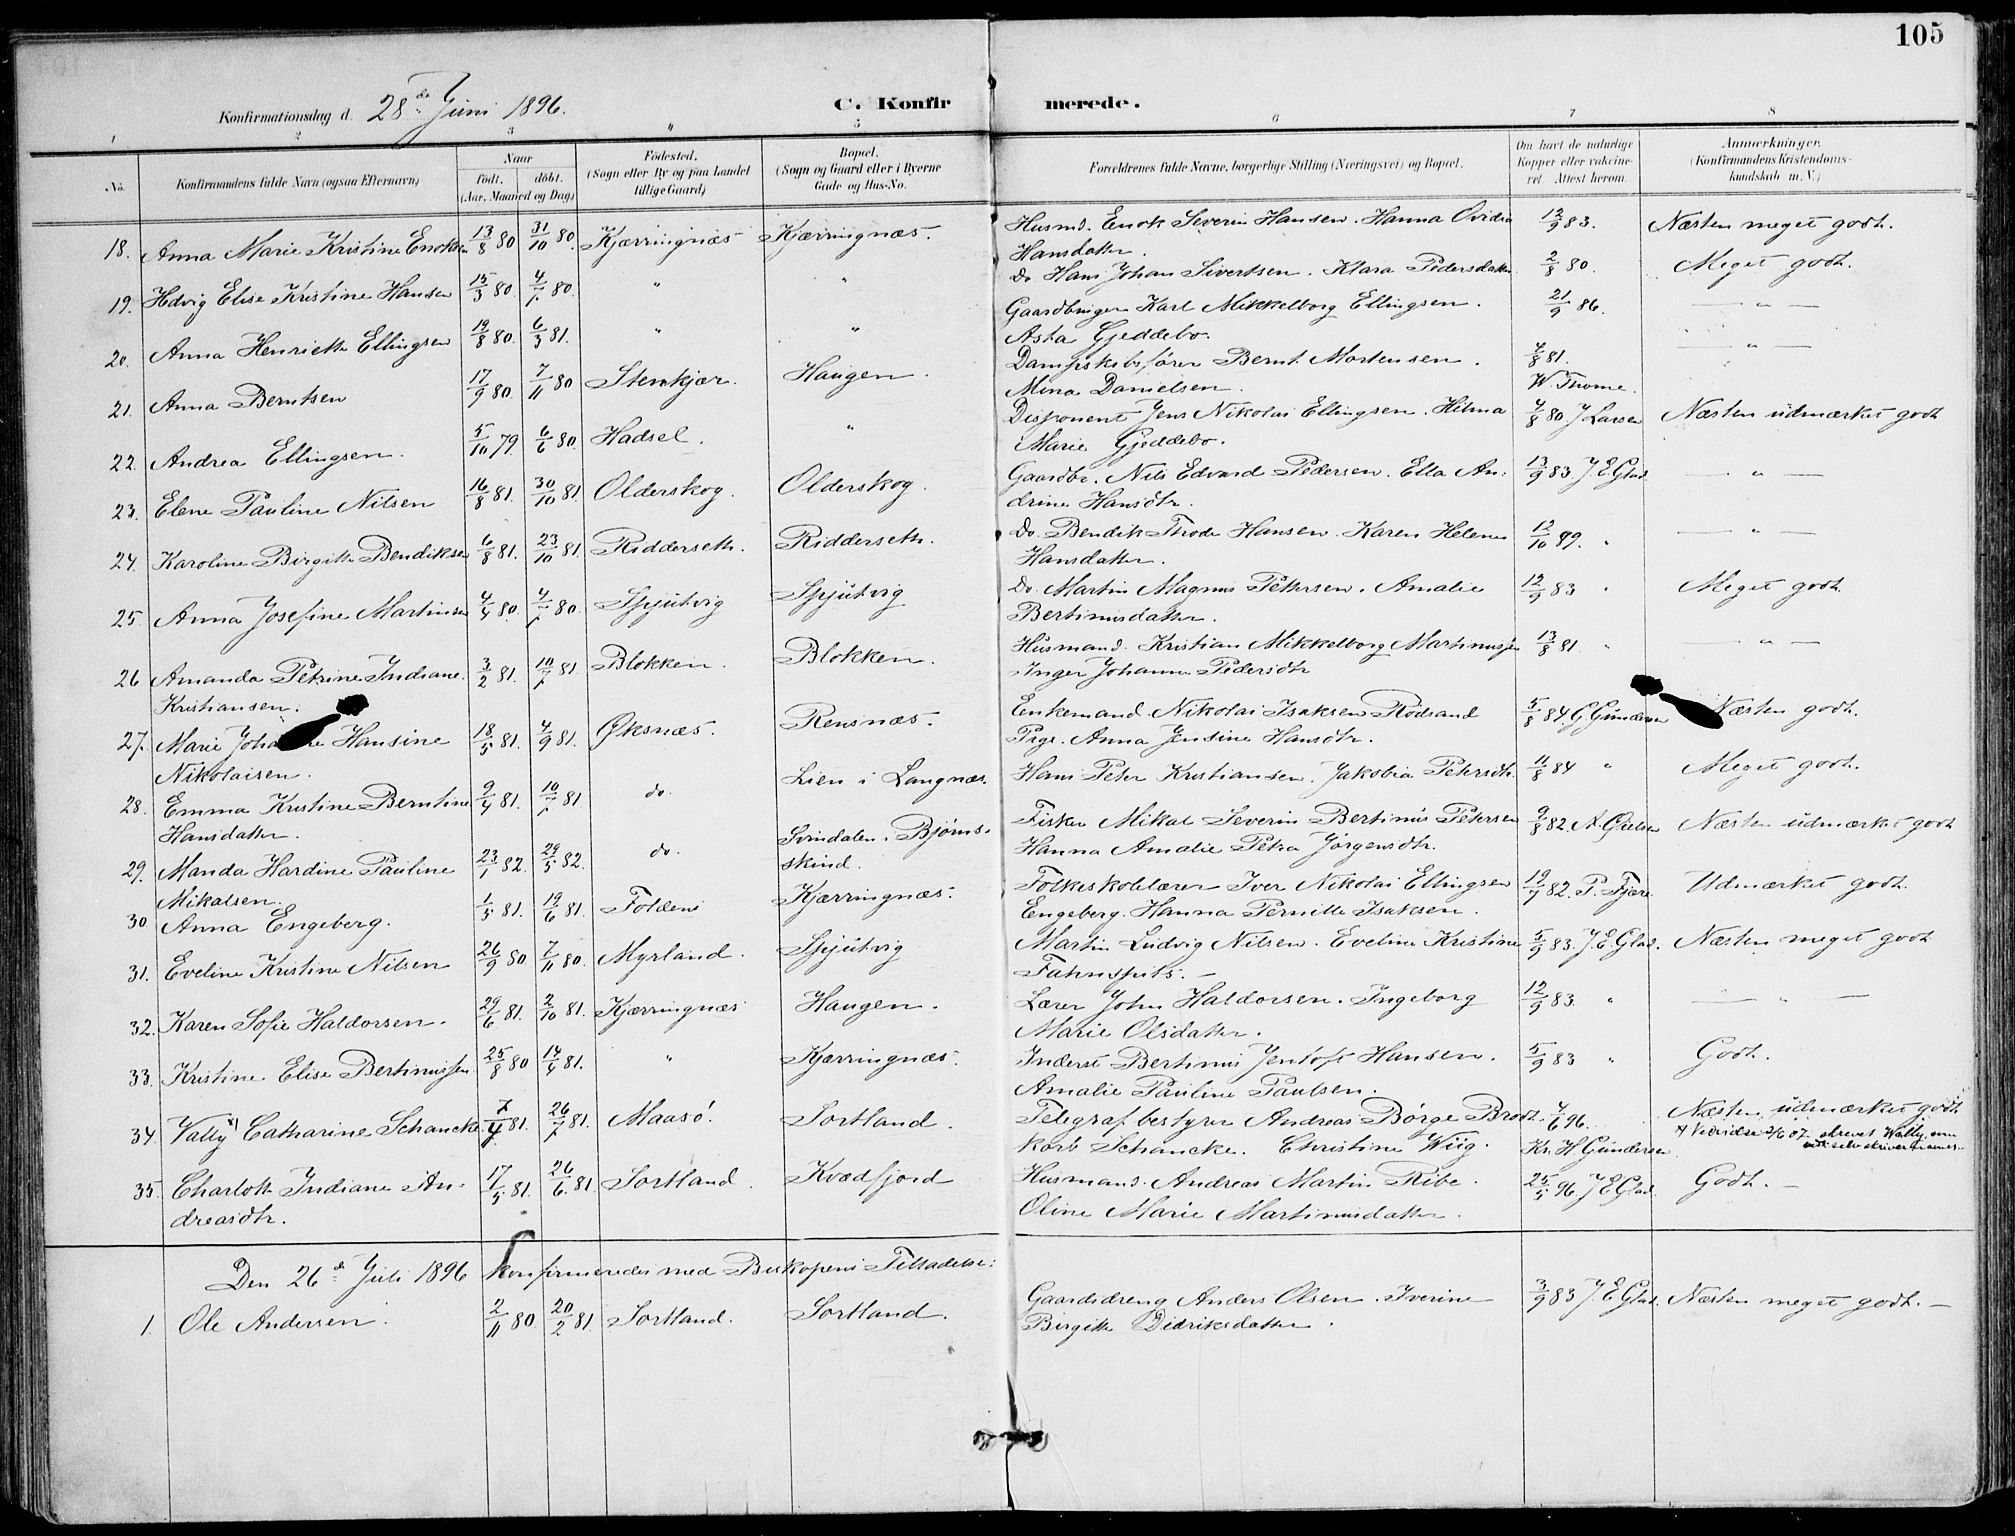 105
Konfirmationsdag d. 28de Juni 1896.
C. Konfirmerede.
1 2 3 4 5 6 7 8
No.
Konfirmandens fulde Navn (ogsaa Efternavn)
Naar
født. døbt.
(Aar, Maaned og Dag)
Fødested.
(Sogn eller By og paa Landet
tillige Gaard)
Bopæl.
(Sogn og Gaard eller i Byerne
Gade og Hus-No.
Forældrenes fulde Navne, borgerlige Stilling (Næringsvei) og Bopæl.
Om havt de naturlige
Kopper eller vaccine-
ret. Attest herom.
Anmærkninger.
(Konfirmandens Kristendoms-
kundskab m. V.)
18. Anna Marie Kristine Enoksen 13/8 80 31/10 80. Kjærringnæs Kjærringnæs. Husmd. Enok Severin Hansen. Hanna Ovidia 12/9 83. Næsten meget godt.
Hansdatter.
19. Hdvig Elise Kristine Hansen 15/3 80. 4/7 80. " " Do Hans Johan Sivertsen. Klara Pedersdatter 2/8 80. Meget godt.
20. Anna Henriette Ellingsen 19/8 80. 6/3 81. " " Gaardbruger Karl Mikkelborg Ellingsen. 21/9 86. — " —
Asta Gjeddebo.
21. Anna Berntsen 17/9 80. 7/11 80 Stenkjær. Haugen. Dampskibsfører Bernt Mortensen. 4/8 81. — " —
Mina Danielsen. W. Thome.
22. Andrea Ellingsen. 5/10 79 6/6 80. Hadsel. " Disponent Jens Nikolai Ellingsen. Hilma 4/8 80 J Larsen Næsten udmærket godt
Marie Gjeddebo.
23. Elene Pauline Nilsen 16/8 81. 30/10 81. Olderskog. Olderskog. Gaardbr. Nils Edvard Pedersen. Ella An- 13/9 83. J. E. Glad. — " —
drine Hansdtr.
24. Karoline Birgitte Bendiksen 6/8 81. 23/10 81. Ridderseth. Ridderseth. Do. Bendik Thode Hansen. Karen Helene 12/10 89. " — " —
Hansdatter.
25. Anna Josefine Martinsen 4/4 80. 4/7 80. Spjutvig Spjutvig Do. Martin Magnus Pettersen. Amalie 12/9 83 " Meget godt.
Bertinusdatter.
26 Amanda Petrine Indiane 3/2 81. 10/7 81. Blokken. Blokken. Husmand. Kristian Mikkelborg Martinussen 13/8 81. " — " —
Kristiansen. Inger Johanna Pedersdtr
27. Marie Johanne Hansine 18/5 81. 4/9 81. Øksnæs. Rensnæs. Enkemand. Nikolai Isaksen Rødsand 5/8 84. G. Gundersen Næsten godt.
Nikolaisen. Pige. Anna Jensine Hansdtr.
28. Emma Kristine Berntine 9/4 81. 10/7 81 do. Lien i Langnæs. Hans Peter Kristiansen. Jakobia Petersdtr. 11/8 84 " Meget godt.
Hansdatter.
29. Manda Hardine Pauline 23/1 82. 29/5 82. do. Svindalen i Bjørns- Fisker Mikal Severin Bertinus Petersen 9/8 82. A. Gielsen Næsten udmærket godt
Mikalsen. skind. Hanna Amalie Petra Jørgensdtr.
30 Anna Engeberg. 1/5 81. 19/6 81. Folden Kjærringnæs. Folkeskolelærer Iver Nikolai Ellingsen 19/7 82. P. Fjære Udmærket godt.
Engeberg. Hanna Pernille Isaksen.
31. Eveline Kristine Nilsen 26/9 80 7/11 80. Myrland. Spjutvig Martin Ludvig Nilsen. Eveline Kristine 5/9 83. J. E. Glad. Næsten meget godt
32. Karen Sofie Haldorsen. 29/6 81. 2/10 81. Kjærringnæs Haugen. Lærer John Haldorsen. Ingeborg 12/9 83. " — " —
Marie Olsdatter.
33. Kristine Elise Bertinussen 25/8 80 14/4 81. " Kjærringnæs. Inderst Bertinus Jentoft Hansen. 5/9 83 " Godt.
Amalie Pauline Paulsen.
34. Vally x) Catharine Schancke. 7/4 81. 26/7 81. Maasø. Sortland. Telegrafbestyrer Andreas Børge Brodt- 4/6 96. Næsten udmærket godt
korb Schancke. Christine Wiig. Kr. H. Gundersen.
35. Charlotte Indiane An- 17/5 81. 26/6 81 Sortland. Kvædfjord Husmand. Andreas Martin Ribe. 25/5 96 J E Glad. Godt. —
dreasdtr. Oline Marie Martinusdatter.
Den 26de Juli 1896 konfirmeredes med Biskopens Tilladelse:
1. Ole Andersen. 2/11 80 20/2 81. Sortland. Sortland. Gaardsdreng Anders Olsen. Iverine 3/9 83 J. E. Glad. Næsten meget godt. —
Birgitte Didriksdatter.